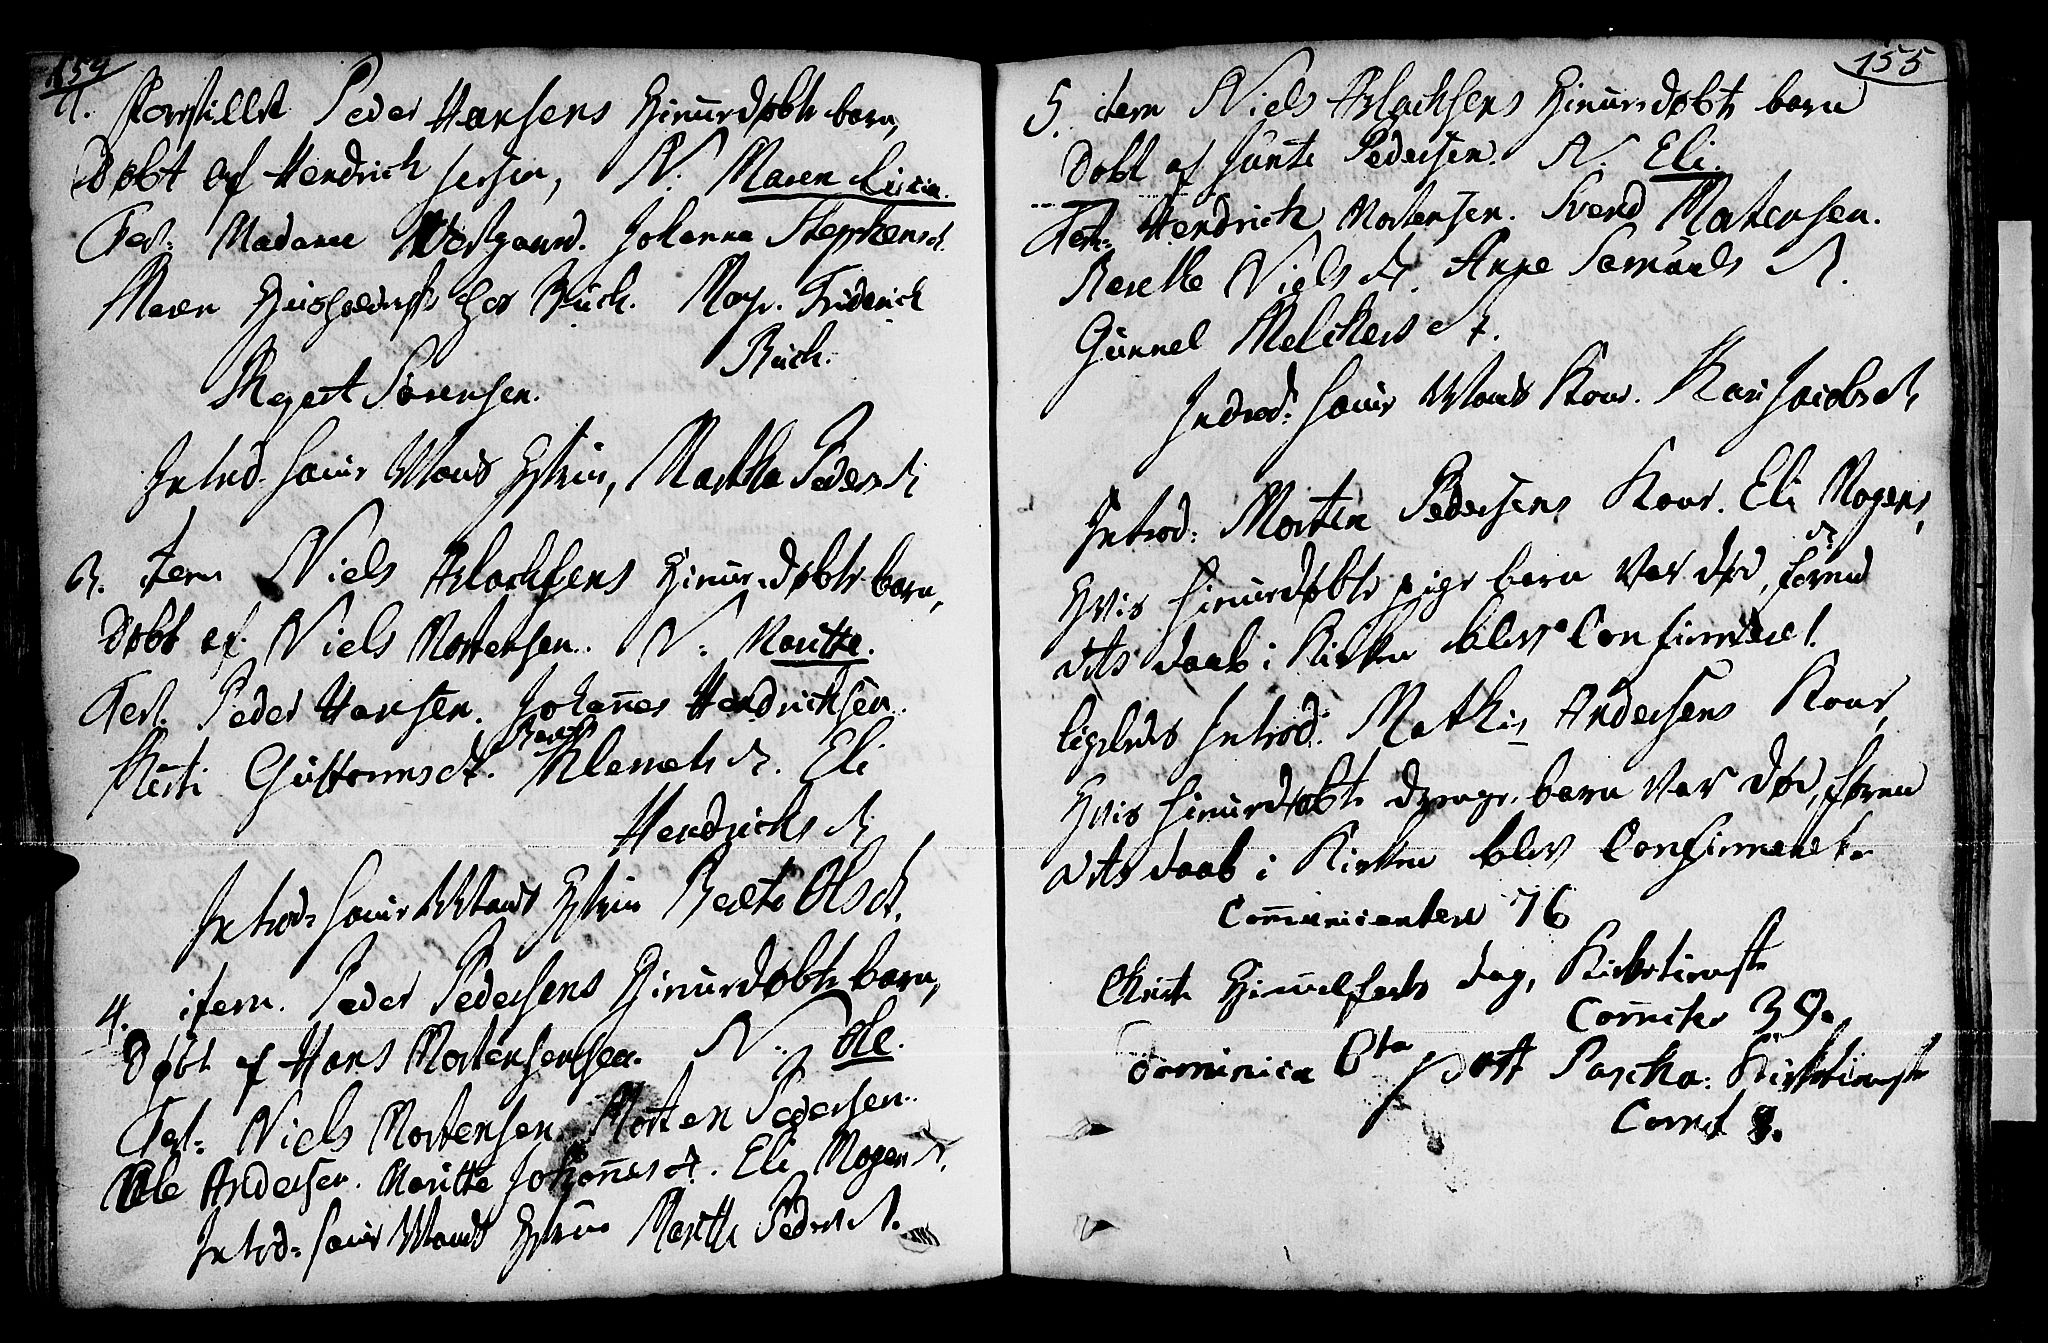 154
Forstillet Peder Hansens hiemmedøbte barn,
Døbt af Hendrich Jersen, N: Maren
Test: Madame Westgaard. Johanna Stephensd.
Maren hos Buch. Friderich
Buch.
Sørensen.
Introd: samme Mands Hustrue, Martha Pedersd.
3. item Niels Aslachsens hiemmedøbte barn,
Døbt af Niels Mortensen. N: Maritte.
Test. Peder Hansen. Johannes Hendrichsen.
Berit
Kirsti Guttormsd. Klemetsd. Eli
Hendrichsd.
Introd: samme Mands Hustrue Berte Olsd.
4. item. Peder Pedersens hiemmedøbte barn,
Døbt af Hans Mortensensen. N: Ole.
Test: Niels Mortensen. Morten Pedersen.
Ole Andersen. Maritte Johannesd. Eli Mogensd.
Introd: samme Mands Hustrue Maritte Pedersd.
155
5. item Niels Aslachsens hiemmedøbte barn
Døbt af Pedersen. N. Eli.
Test: Hendrich Mortensen. Svend Mortensen.
Berethe Nielsd. Anne Samuelsd.
Gunnel Melchersd.
Introd: samme Mands Kone. Kari Jacobsd.
Introd: Morten Pedersens Kone. Eli Mogens
d.
hvis hiemmedøbte pige barn var død, førend
dets daab i Kirken blev Confirmeret.
ligeledes Introd: Mathis Andersens Kone,
hvis hiemmedøbte drenge barn var død, førend
dets daab i Kirken blev Confirmeret.
Communicantere 76
Christi Himmelfarts dag, Kirketieniste
Comniter 39.
Dominica 6ta post Pascha. Kirketieniste
Comit 8.